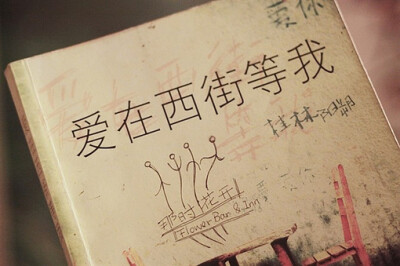 你
爱在西街等我
桂林·阳朔
那时花开
Flower Bar & Inn